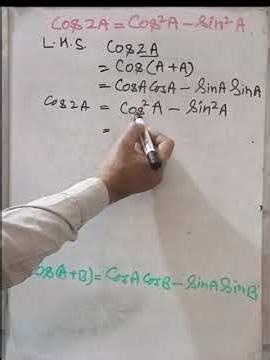 Cos2A = Cos²A - Sin²A
L.H.S. Cos2A
= Cos(A+A)
= CosA CosA - SinA SinA
Cos2A = Cos²A - Sin²A
=
Cos(A+B) = CosA CosB - SinA SinB